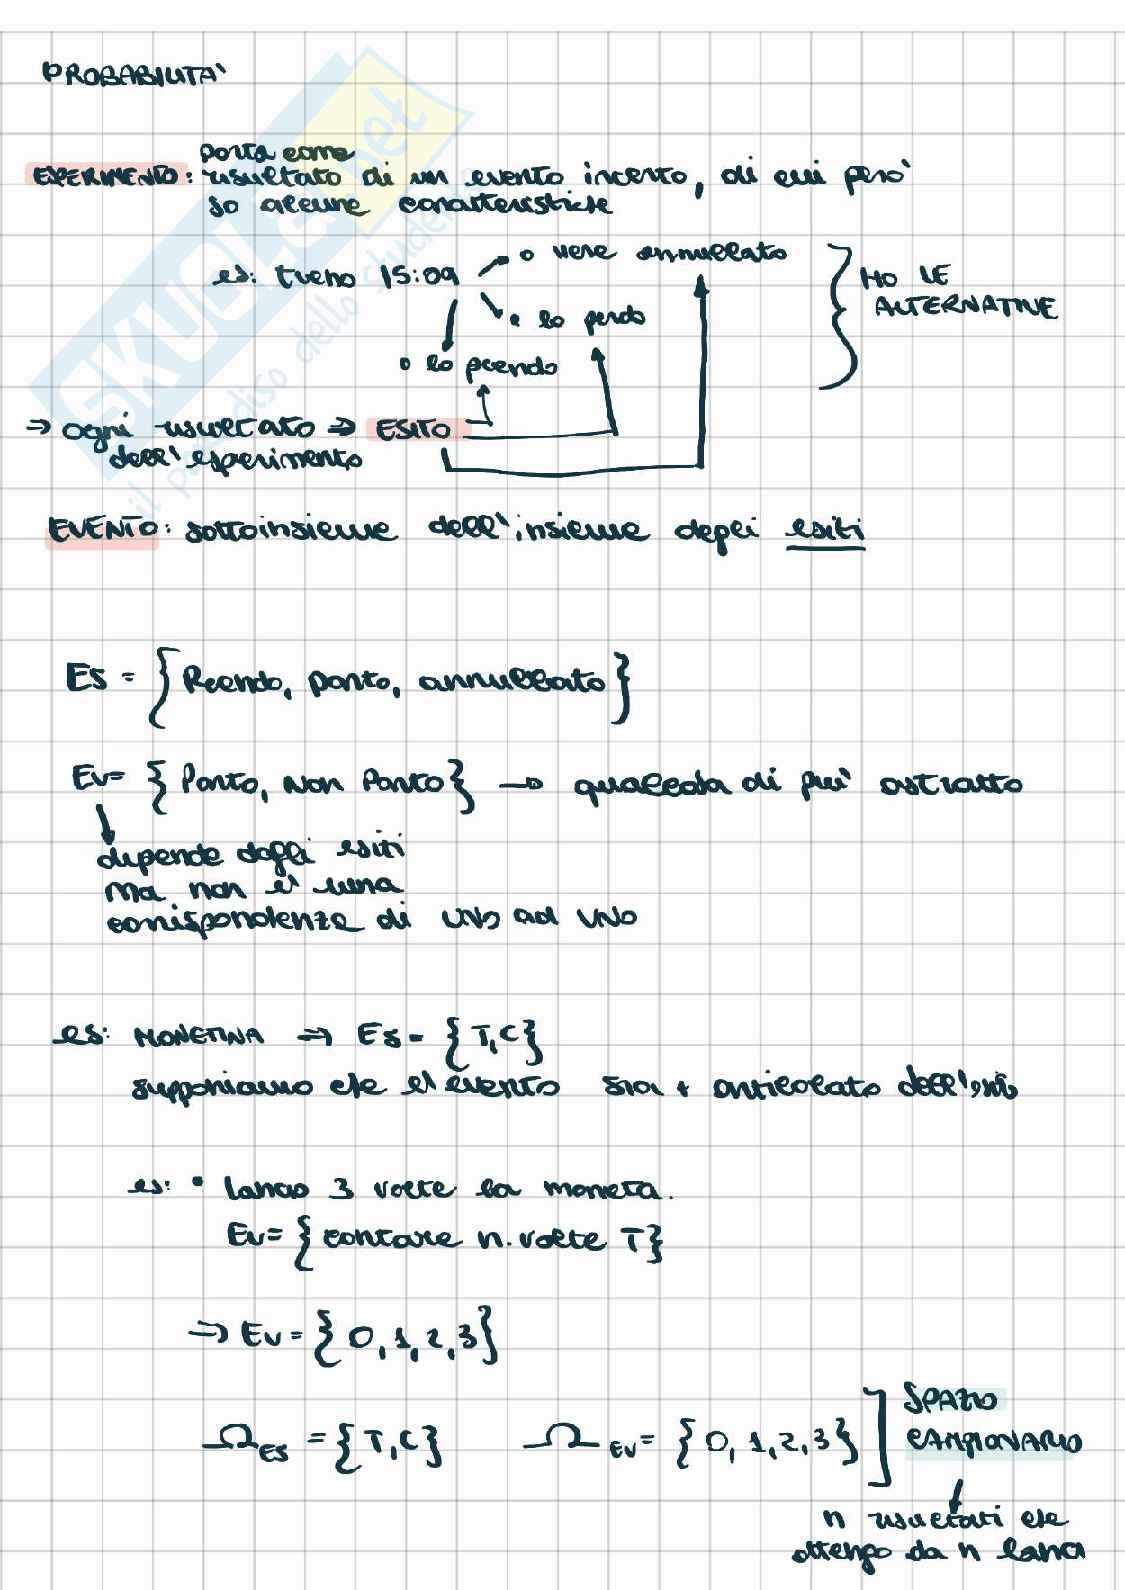 PROBABILITA'
porta come
ESPERIMENTO: risultato di un evento incerto, di cui pero'
so alcune caratteristiche
es: treno 15:09
o viene annullato
o lo perdo
o lo prendo
HO LE
ALTERNATIVE
→ ogni risultato ⇒ ESITO
dell'esperimento
EVENTO: sottoinsieme dell'insieme degli esiti
Es = {Prendo, parto, annullato}
Ev = {Parto, Non Parto} → qualcosa di piu' astratto
dipende dagli esiti
ma non e' una
corrispondenza di uno ad uno
es: MONETINA ⇒ Es = {T,C}
supponiamo che l'evento sia + articolato dell'
es: • lancio 3 volte la moneta.
Ev = {contare n. volte T}
⇒ Ev = {0,1,2,3}
Ω Es = {T,C} Ω Ev = {0,1,2,3}
SPAZIO
CAMPIONARIO
n risultati che
ottengo da n lanci
SKUOLA.net
il paradiso dello studente